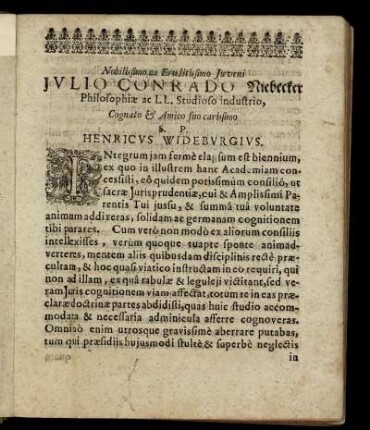 Nobilissimo ac Eruditissimo Juveni
JVLIO CONRADO Niebecker
Philosophiæ ac LL. Studioso industrio,
Cognato & Amico suo carissimo
S. P.
HENRICVS WIDEBVRGIVS.
INtegrum jam fermè elapsum est biennium,
ex quo in illustrem hanc Academiam con-
cessisti, eô quidem potissimùm consiliô, ut
sacræ Jurisprudentiæ, cui & Amplissimi Pa-
rentis Tui jussu, & summâ tuâ voluntate
animum addixeras, solidam ac germanam cognitionem
tibi parares. Cum verò non modò ex aliorum consiliis
intellexisses, verùm quoque tuapte sponte animad-
verteres, mentem aliis quibusdam disciplinis rectè præ-
cultam, & hoc quasi viatico instructam in eo requiri, qui
non ad illam, ex quâ rabulæ & leguleji victitant, sed ve-
ram Juris cognitionem viam affectat, totum te in eas præ-
claræ doctrinæ partes abdidisti, quas huic studio accom-
modata & necessaria adminicula afferre cognoveras.
Omninò enim utrosque gravissimè aberrare putabas,
tum qui præsidiis hujusmodi stultè & superbè neglectis
in